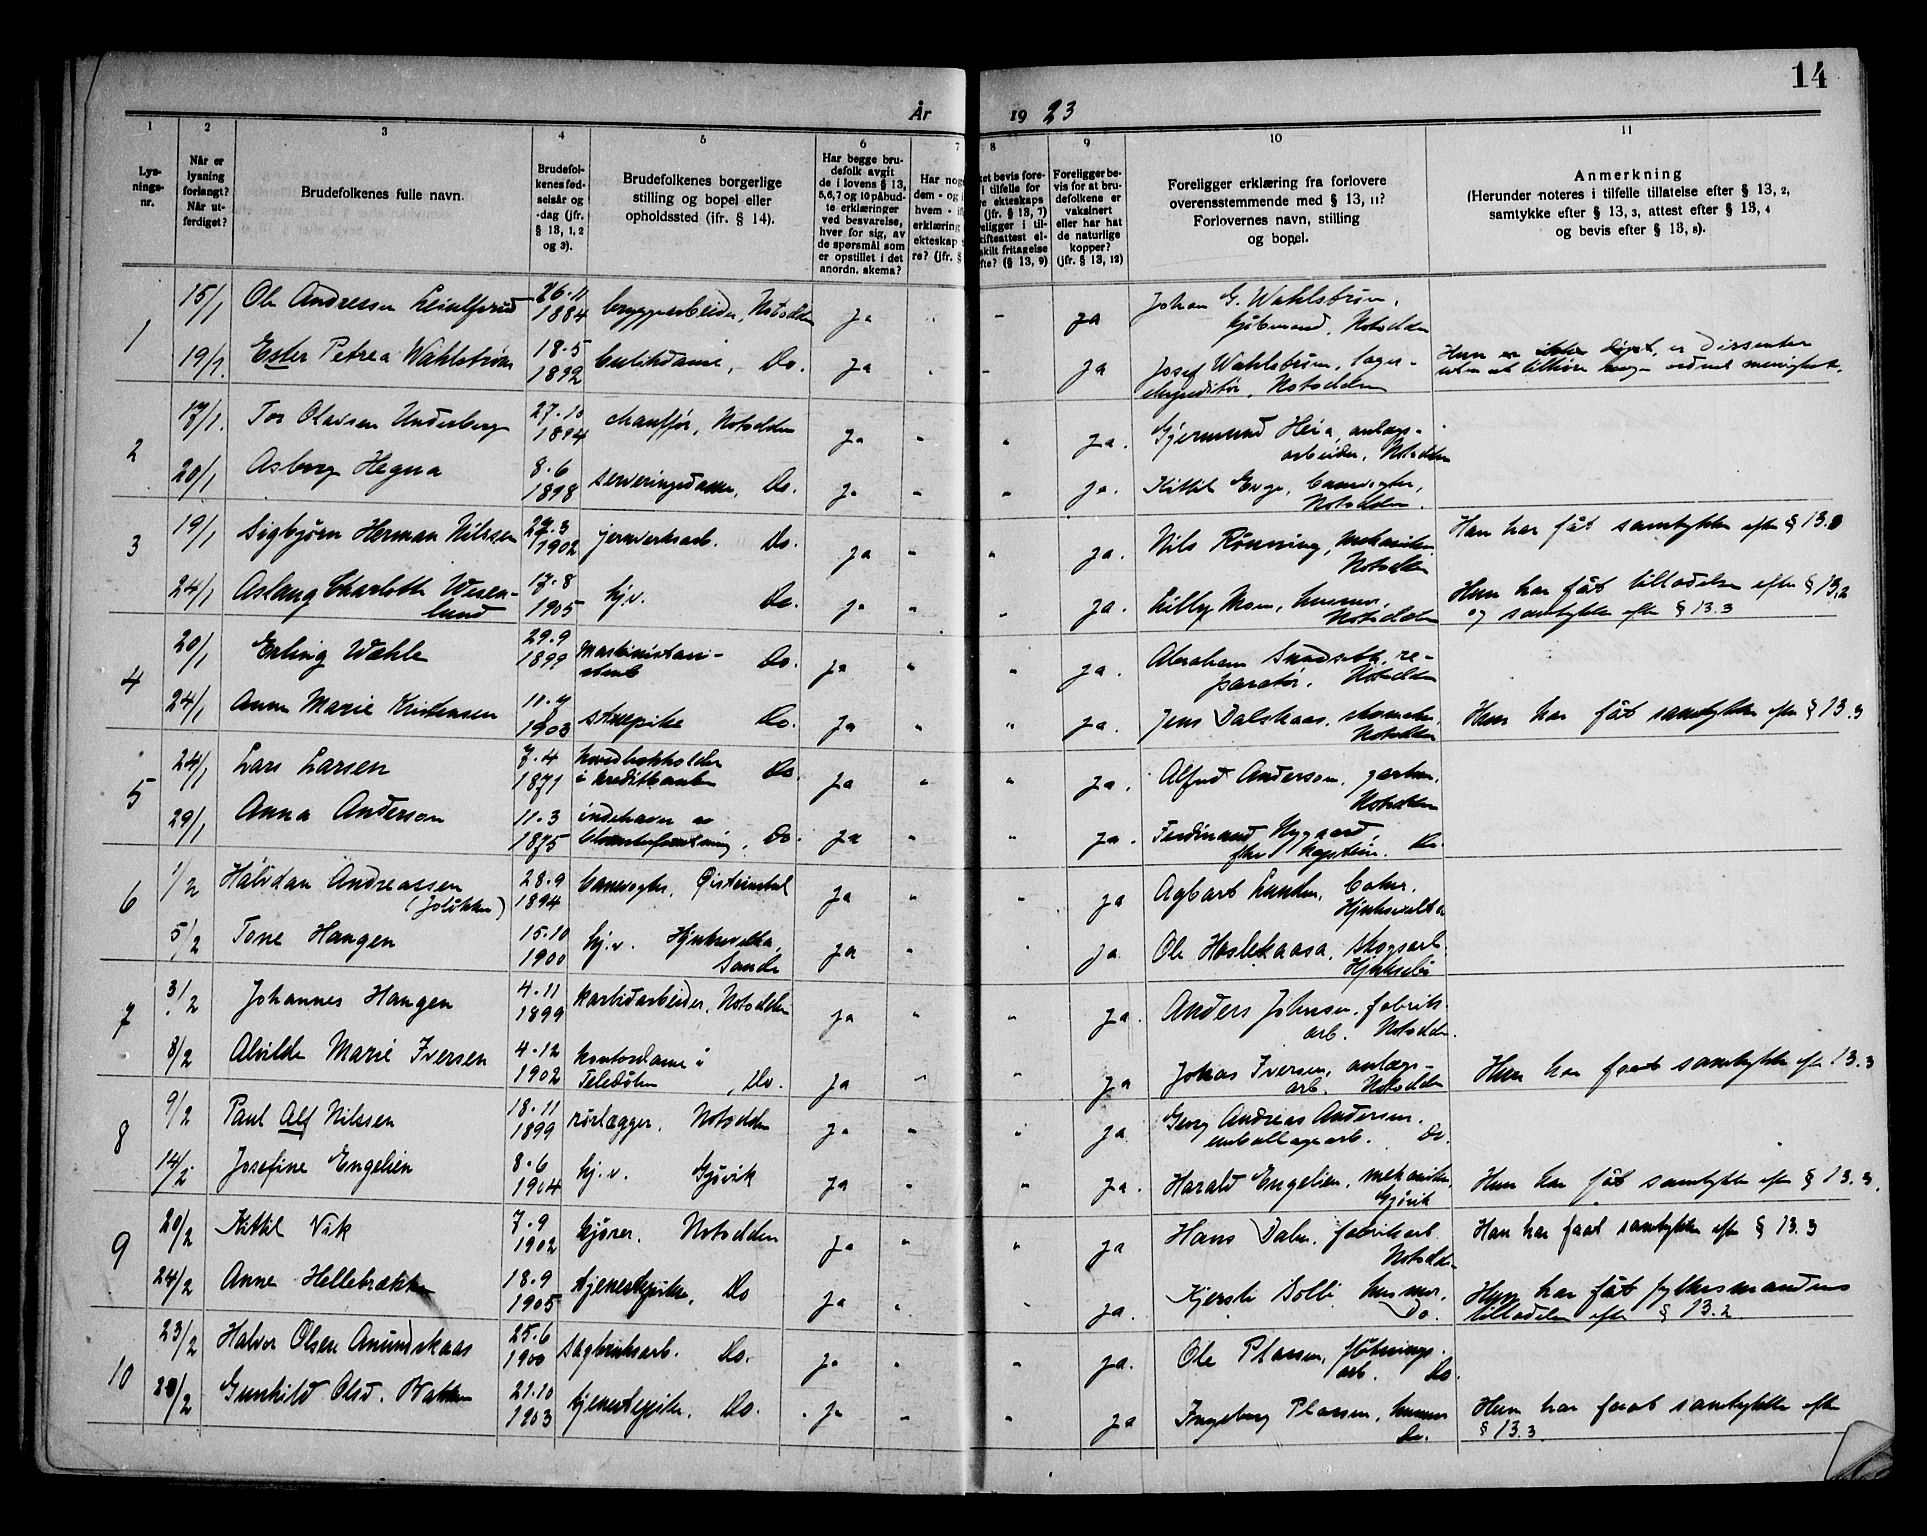 14
År 1923
1 2 3 4 5 6 7 8 9 10 11
Lys-
nings-
nr.
Når er
lysning
forlangt?
Når ut-
ferdiget?
Brudefolkenes fulle navn.
Brudefol-
kenes fød-
selsår og
-dag (jfr.
§ 13, 1, 2
og 3).
Brudefolkenes borgerlige
stilling og bopel eller
opholdssted (ifr. § 14).
Har begge bru-
defolk avgit
de i lovens § 13,
5,6,7 og 10 påbud-
te erklæringer
ved besvarelse,
hver for sig, av
de spørsmål som
er opstillet i det
anordn. skema?
Har nog
dem - og i
hvem - if
erklæring
ekteskap
re? (jfr. §
ket bevis fore-
i tilfelle for
re ekteskaps
(jfr. § 13, 7)
religger i til-
kifteattest el-
skilt fritagelse
fte? (§ 13, 9)
Foreligger be-
vis for at bru-
defolkene er
vaksinert
eller har hat
de naturlige
kopper?
(jfr. § 13, 12)
Foreligger erklæring fra forlovere
overensstemmende med § 13, 11?
Forlovernes navn, stilling
og bopel.
Anmerkning
(Herunder noteres i tilfelle tillatelse efter § 13, 2,
samtykke efter § 13, 3, attest efter § 13, 4
og bevis efter § 13, 8).
1 15/1 Ole Andressen 26.11 1884 bryggearbeider, Notodden ja " " ja Johan G. Wahlstrøm,
kjøbmand, Notodden
19/1. Ester Petrea Wahlstrøm 18.5 1892 butikdame, Do. ja " " ja Josef Wahlstrøm, lager-
ekspeditør, Notodden
Hun er ikke døpt, er dissenter
uten at tilhøre nogen ordnet menighet.
2 17/1. Tor Olavsen Underberg 27.10 1894 chauffør, Notodden ja " " ja. Gjermund Heia, anlægs-
arbeider, Notodden
20/1 Asborg Hegna 8.6 1898 serveringsdame, Do. ja " " ja. Kittil Enge, banevogter,
Notodden.
3 19/1 Sigbjørn Herman Nilssen 22.3 1902 jernverksarb. Do. ja " " ja. Nils Rønning, mekaniker
Notodden
Han har fåt samtykke efter § 13.3
24/1 Aslaug Charlotte Wesen-
lund 17.8 1905 hj.v. Do. ja " " ja. Lilly Moen, husmor,
Notodden
Hun har fåt tilladelse efter § 13.2
og samtykke efter § 13.3
4 20/1 Erling Wæhle 29.9 1899 Maskinistassi-
stent Do. ja " " ja. Abraham re-
paratør. Notodden
24/1 Anne Marie Kristensen 1903 stuepike Do. ja " " ja. Jens Dalskaas, skomaker,
Notodden
Hun har fåt samtykke efter § 13.3
5 24/1 Lars Larsen 7.4 1871 hovedbokholder
i kreditbanken Do. ja " " ja. Alfred Anderson, gartner,
Notodden
29/1 Anna Anderson 11.3 1875 indehaver av
blomsterforretning, Do. ja " " ja. Ferdinand Nygaard,
fhv. kaptein. Do.
6 1/2 Halvdan Andreassen
(Jolikken) 28.9 1894 banevogter, ja " ja Agbart Lunden, baker,
Hjuksevelta
5/2 Tone Haugen 15.10 1900 hj.v. Hjuksevelta,
Sande ja " ja Ole Haslekaasa, skogsarb.
Hjuksebø
7 3/2 Johannes Haugen 4.11 1899 karbidarbeider, Notodden ja " " ja. Anders Johnsen, fabrik-
arb. Notodden.
8/2 Alvilde Marie Iversen 4.12 1902 kontordame i
Teledølen, Do. ja " " ja Johas Iversen, anlægs-
arb. Notodden
Hun har faat samtykke efter 13.3
8 9/2 Paul Alf Nilssen 18.11 1899 rørlægger, Notodden ja " " ja Georg Andreas Andersen,
emballagearb. Do.
14/2 Josefine Engelien 8.6 1904 hj.v. Gjøvik ja " " ja. Harald Engelien, mekaniker,
Gjøvik
Hun har fåt samtykke efter § 13.3.
9 20/2 Kittil Vik 7.9 1902 kjører. Notodden ja " " ja Hans Dalen, fabrikarb.
Notodden
Han har faat samtykke efter § 13.3
24/2 Anne Hellebrække 18.9 1905 tjenestepike, Do ja " ja. Kjersti Solli husmor,
Do.
Hun har fåt fylkesmandens
tilladelse efter § 13.2.
10 23/2 Halvor Olsen Amundskaas 25.6 1900 sagbruksarb. Do. ja " " ja. Ole Plassen, fløtnings-
arb. Do.
28/2 Gunhild Olsd. Bakken 21.10 1903 tjenestepike, Do. ja " " ja Ingeborg Plassen, husmor
Do.
Hun har faat samtykke efter
§ 13.3.